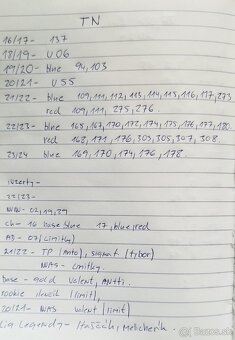 TN
16/17- 137
18/19- U06
19/20- blue 94, 103
20/21- U55
21/22- blue 109, 111, 112, 113, 114, 115, 116, 117, 273
red 109, 111, 275, 276.
22/23- blue 165, 167, 170, 172, 174, 175, 176, 177, 180
red 168, 171, 176, 303, 305, 307, 308.
23/24 blue 169, 170, 174, 176, 178.
inzerty-
22/23-
NW- 02, 19, 29
ch- 16 base blue 17, blue, red
AS- 07 (limitky)
21/22- TP (Auto), signat (Tybor)
WAS- limitky.
base- gold Valent,
rookie (limit),
20/21- WAS Valent (limit)
Liga Legends- Haščák, Melicherík